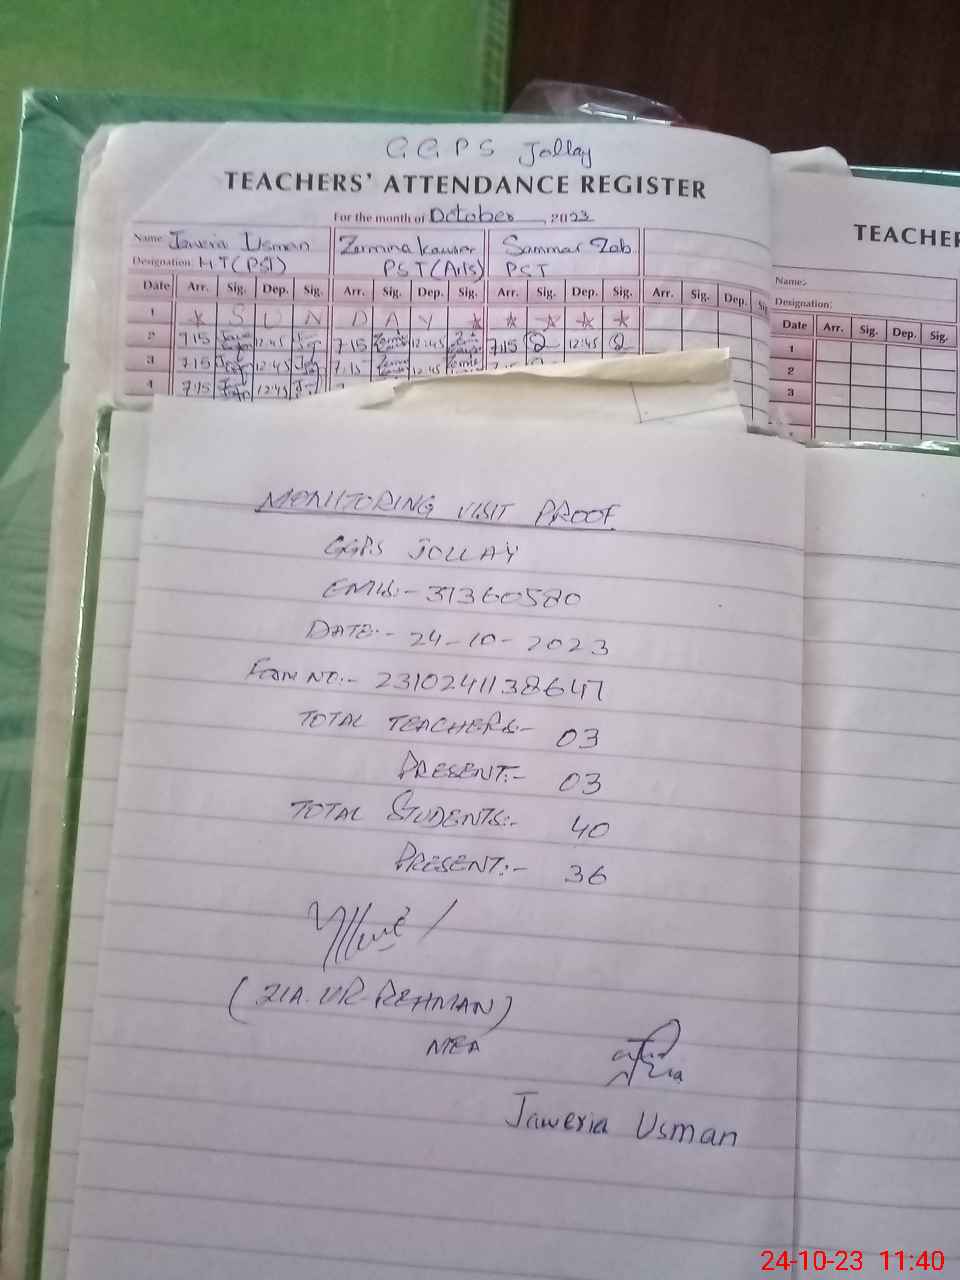 GGPS Jollay
TEACHERS' ATTENDANCE REGISTER
For the month of October, 2023
Name: Jaweria Usman Zarmina Kawser Sammar Zeb
Designation: HT(PST) PST(Arts) PST
Date Arr. Sig. Dep. Sig. Arr. Sig. Dep. Sig. Arr. Sig. Dep. Sig. Arr. Sig. Dep.
1 * S U N D A Y * * * * *
2 7:15 12:45 7:15 12:45 7:15 12:45
3 7:15 12:45 7:15 12:45 7:15
4 7:15 12:45
TEACHER
Name:
Designation:
Date Arr. Sig. Dep. Sig.
1
2
3
MONITORING VISIT PROOF
GGPS JOLLAY
EMIS:- 31360580
DATE:- 24-10-2023
FORM NO:- 23102411138647
TOTAL TEACHERS:- 03
PRESENT:- 03
TOTAL STUDENTS:- 40
PRESENT:- 36
(ZIA. UR. REHMAN)
MEA
Jaweria Usman
24-10-23 11:40